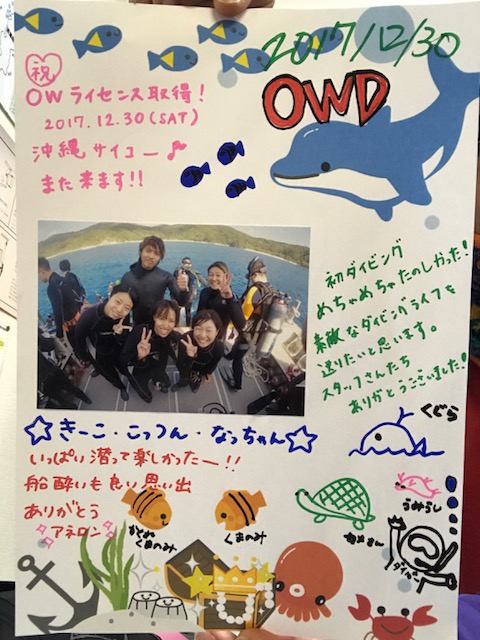 2017/12/30
OWD
祝
OWライセンス取得！
2017.12.30(SAT)
沖縄サイコー♪
また来ます!!
初ダイビング
めちゃめちゃたのしかった！
素敵なダイビングライフを
送りたいと思います。
スタッフさんたち
ありがとうございました！
☆きーこ・こっつん・なっちゃん☆
いっぱい潜って楽しかったー!!
船酔いも良い思い出
ありがとう
アネロン
くじら
うみうし
くまのみ
くまのみ